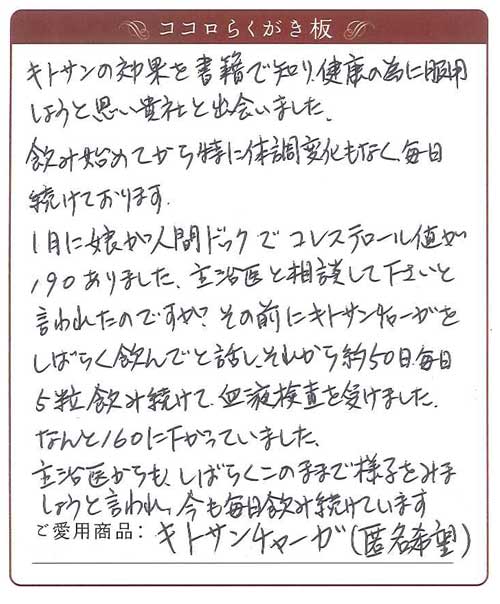 ココロらくがき板
キトサンの効果を書籍で知り、健康の為に服用
しようと思い貴社と出会いました。
飲み始めてから特に体調変化もなく、毎日
続けております。
1月に娘が人間ドックでコレステロール値が
190ありました、主治医と相談して下さいと
言われたのですが、その前にキトサンチャーガを
しばらく飲んでと話し、それから約50日、毎日
5粒飲み続けて、血液検査を受けました。
なんと160に下がっていました、
主治医からも、しばらくこのままで様子をみま
しょうと言われ、今も毎日飲み続けています
ご愛用商品：キトサンチャーガ(匿名希望)